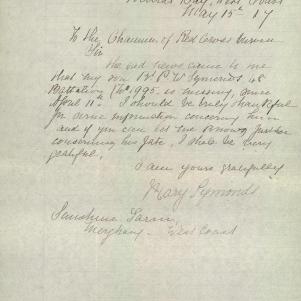 May 15th 17
To the Chairman of Red Cross Bureau
Sir
The sad news came to me
that my son Pt. C W Symonds 48
Battalion No 1995. is missing, since
April 11th. I should be truly thankful
for some information concerning him
and if you can let me know
concerning his fate, I shall be very
grateful.
I am yours gratefully
Mary Symonds
Sunshine Farm,
West Coast